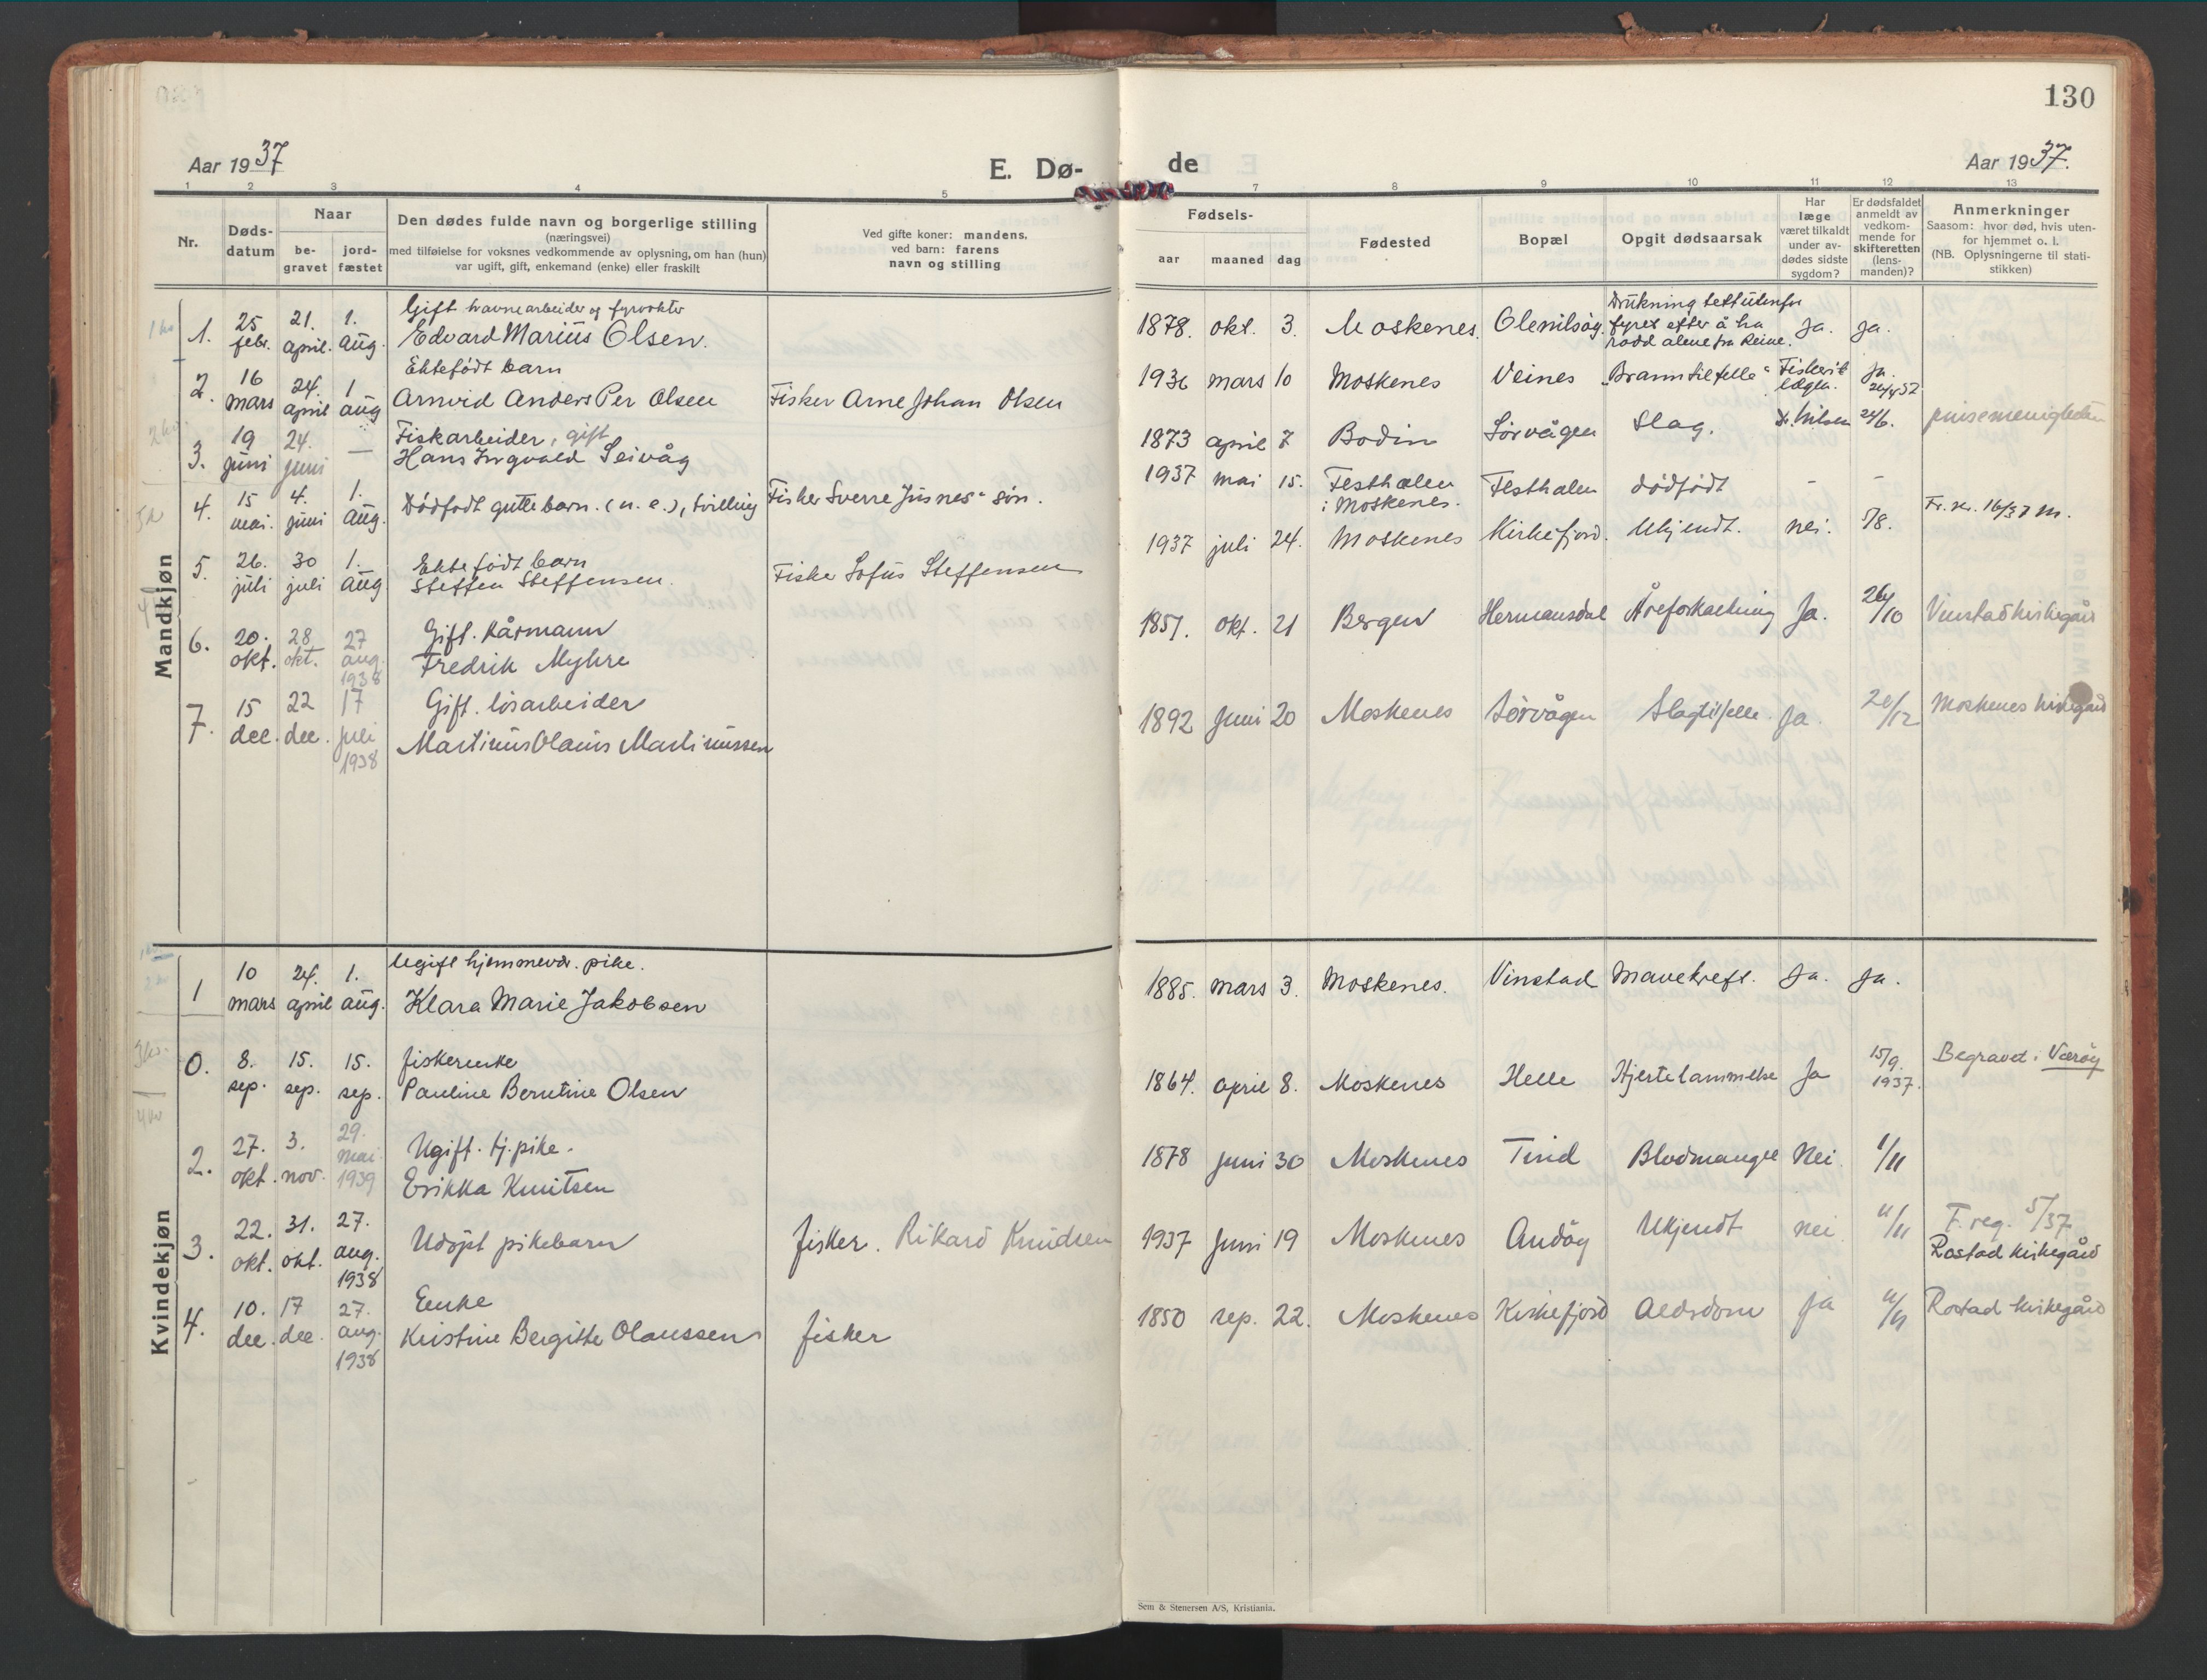 130
Aar 1937
E. Dø-
de
Aar 1937.
1 2 3 4 5 7 8 9 10 11 12 13
Nr.
Døds-
datum
Naar
be-
gravet
jord-
fæstet
Den dødes fulde navn og borgerlige stilling
(næringsvei)
med tilføielse for voksnes vedkommende av oplysning, om han (hun)
var ugift, gift, enkemand (enke) eller fraskilt
Ved gifte koner: mandens,
ved barn: farens
navn og stilling
Fødsels-
aar
maaned
dag
Fødested
Bopæl
Opgit dødsaarsak
Har
læge
været tilkaldt
under av-
dødes sidste
sygdom?
Er dødsfaldet
anmeldt av
vedkom-
mende for
skifteretten
(lens-
manden)?
Anmerkninger
Saasom: hvor død, hvis uten-
for hjemmet o. l.
(NB. Oplysningerne til stati-
stikken)
Mandkjøn
1. 25 febr. 21. april. 1. aug.
Gift havnearbeider og fyrvokter
Edvard Marius Olsen.
1878. okt. 3. Moskenes. Olenilsøy.
Drukning tett utenfor
fyret efter å ha
rodd alene fra Reine.
Ja. Ja.
2. 16 mars 24. april 1 aug
Ektefödt barn
Arnvid Anders Per Olsen
Fisker Arne Johan Olsen
1936 mars 10 Moskenes Veines "Branntilfelle"
Ja.
3. 19 juni 24. juni —
Fiskarbeider, gift
Hans Ingvald Seivåg
1873 april 7 Bodin Sörvågen Slag. Dr. Nilsen 24/6. pinsemenigheten
4. 15 mai. 4. juni 1. aug.
Dödfödt guttebarn. (u. e.), tvilling
Fisker Sverre Jusnes' sön.
1937 mai 15. Festhælen
i Moskenes.
Festhalen dödfödt - -
Fr. nr. 16/37 m.
5. 26. juli 30 juli 1. aug
Ektefödt barn
Steffen Steffensen.
Fisker Sofus Steffensen
1937 juli 24. Moskenes Kirkefjord. Ukjendt. nei. 5/8.
6. 20. okt. 28 okt. 27 aug. 1938
Gift. Kårmann
Fredrik Myhre
1851. okt. 21 Bergen Hermansdal Åreforkalkning Ja. 26/10 Vinstad kirkegård
7. 15 dec. 22 dec. 17 juli 1938
Gift. lösarbeider
Martinus Olaus Martinussen
1892 Juni 20 Moskenes Sörvågen Slagtilfelle. Ja. 20/12 Moskenes kirkegård
Kvindekjøn
1 10 mars 24. april 1. aug.
Ugift hjemmevær. pike.
Klara Marie Jakobsen
1885. mars 3. Moskenes. Vinstad Mavekreft. Ja. Ja.
0. 8. sep. 15. sep. 15. sep.
fiskerenke
Pauline Berntine Olsen
1864. april 8. Moskenes Helle Hjertelammelse Ja 15/9. 1937. Begravet i Værøy
2. 27. okt. 3. nov. 29. mai 1939
Ugift. tj. pike.
Erikka Knutsen
1878 Juni 30 Moskenes Tind Blodmangel Nei. 1/11
3. 22. okt. 31. okt. 27. aug. 1938
Udöpt pikebarn
fisker. Rikard Knudsen
1937 Juni 19 Moskenes Andöy Ukjendt nei 11/11
F. reg. 5/37
Rostad kirkegård
4. 10. dec. 17 dec. 27. aug. 1938
Enke
Kristine Bergitte Olaussen
fisker
1850 sep. 22. Moskenes Kirkefjord Aldrdom Ja Rostad kirkegård
Sem & Stenersen A/S, Kristiania.